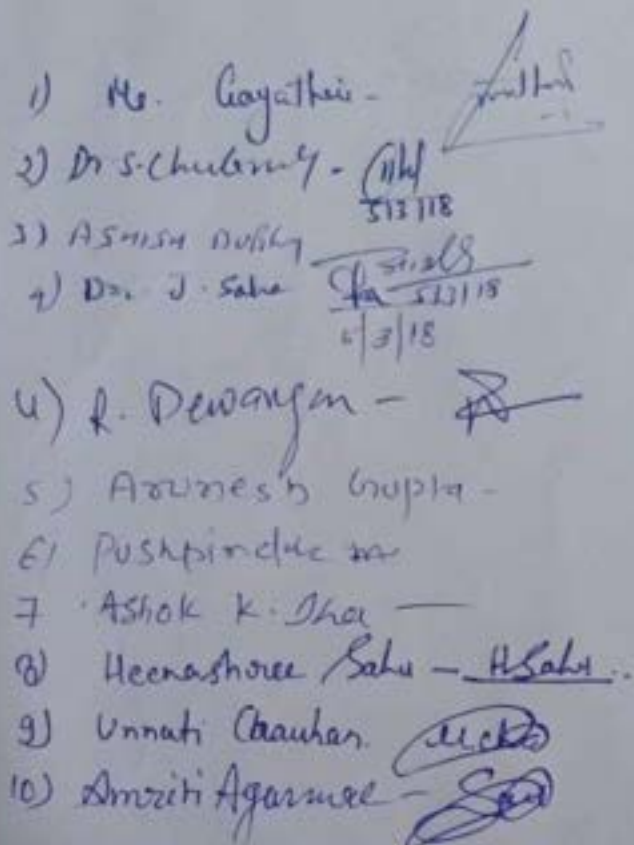 1) Ms. Gayathri -
2) Dr S. -
5/3/18
3) ASHISH
4) Dr. J. Saha
5/3/18
5/3/18
4) R. Dewangan -
5) Arunesh Gupta -
6) Pushpinder
7 Ashok K. Jha —
8) Heenashree Sahu - HSahu
9) Unnati Chauhan
10) Amriti Agarwal -